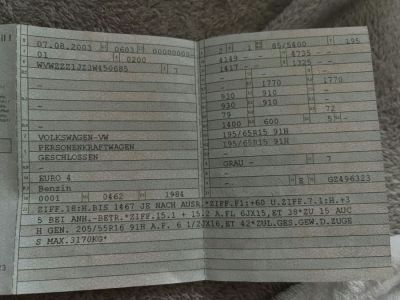 07.08.2003 0603 00000000
01 0200
WVWZZZ1JZ3W450685 7
-
-
-
2
VOLKSWAGEN-VW
PERSONENKRAFTWAGEN
GESCHLOSSEN
-
EURO 4
Benzin
0001 0462 1984
2 1 85/5400 195
4149 - - 4735 - -
1417 - - 1325 - -
- 1770 1770
910 910 - -
930 910 - -
79 - 72
1400 600 5 -
195/65R15 91H
195/65R15 91H
-
GRAU - 7
-
- E GZ496323
ZIFF.18:H.BIS 1467 JE NACH AUSR.*ZIFF.F1:+60 U.ZIFF.7.1:H.+3
5 BEI ANH.-BETR.*ZIFF.15.1 + 15.2 A.FL 6JX15,ET 38*ZU 15 AUC
H GEN. 205/55R16 91H A.F. 6 1/2JX16,ET 42*ZUL.GES.GEW.D.ZUGE
S MAX.3170KG*